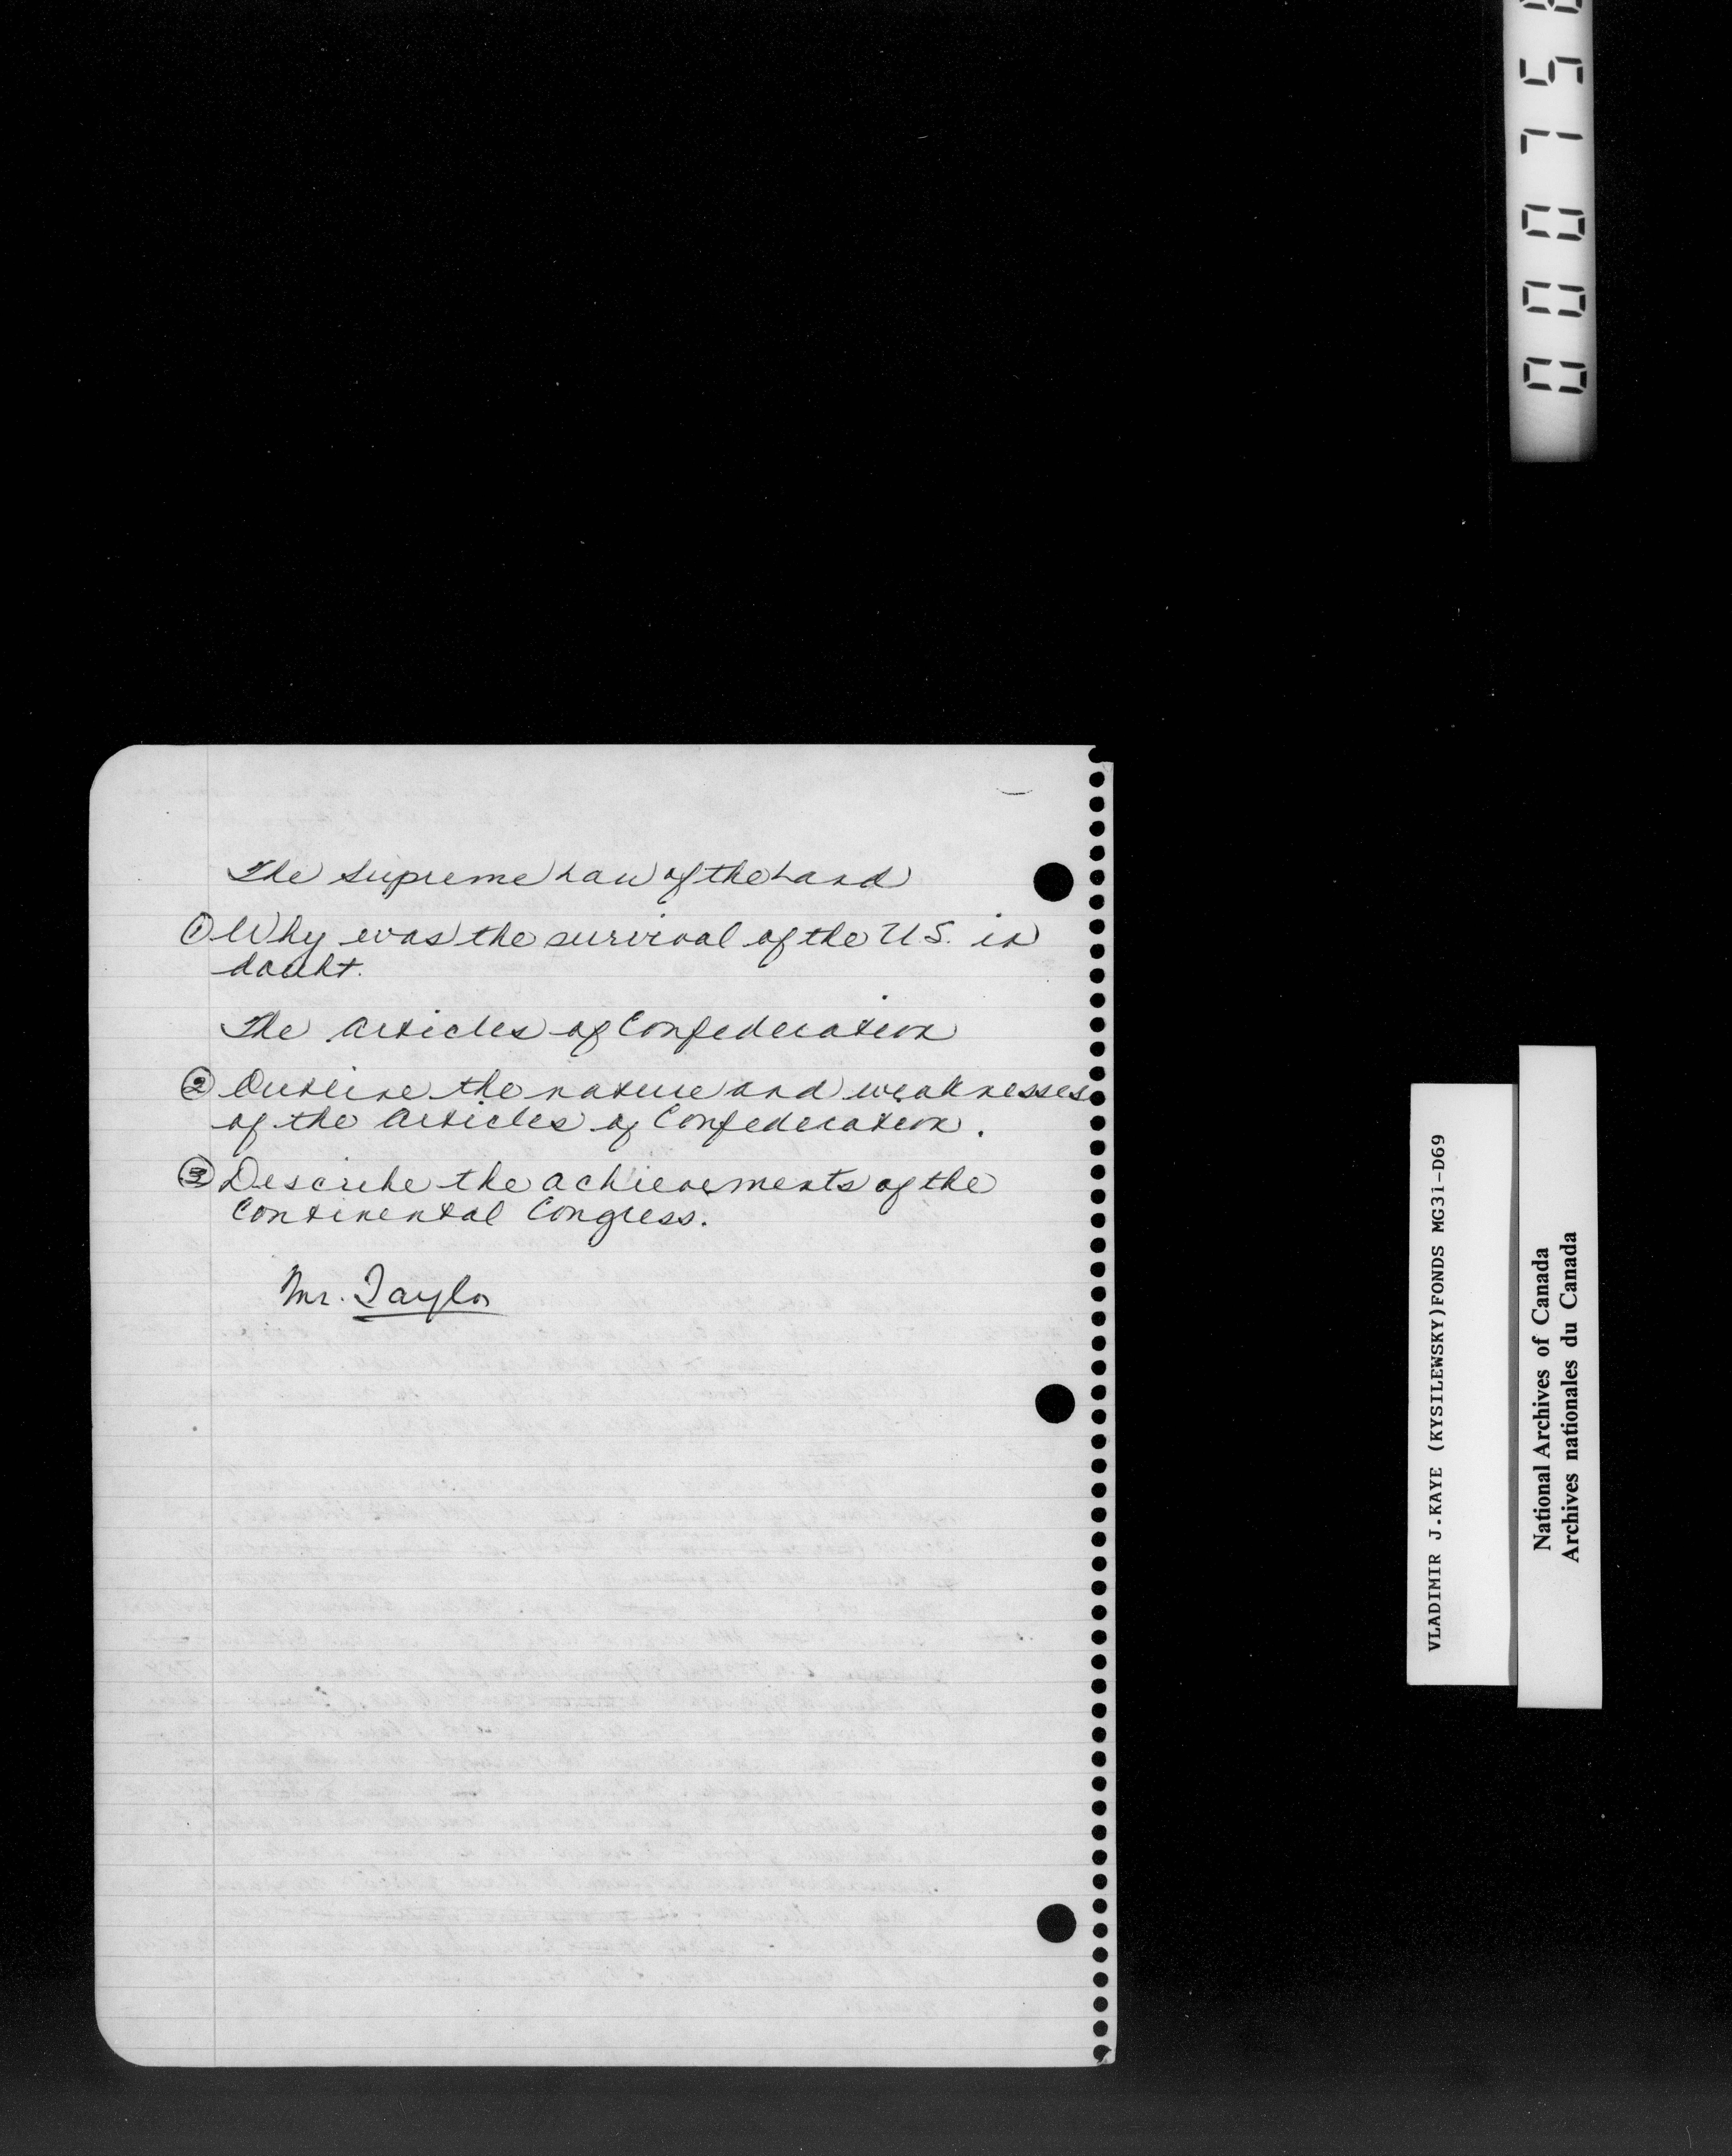 The Supreme Law of the Land
① Why was the survival of the U.S. in
doubt.
The Articles of Confederation
② Outline the nature and weaknesses
of the Articles of Confederation.
③ Describe the achievements of the
Continental Congress.
Mr. Taylor
VLADIMIR J.KAYE (KYSILEWSKY)FONDS MG31-D69
National Archives of Canada
Archives nationales du Canada